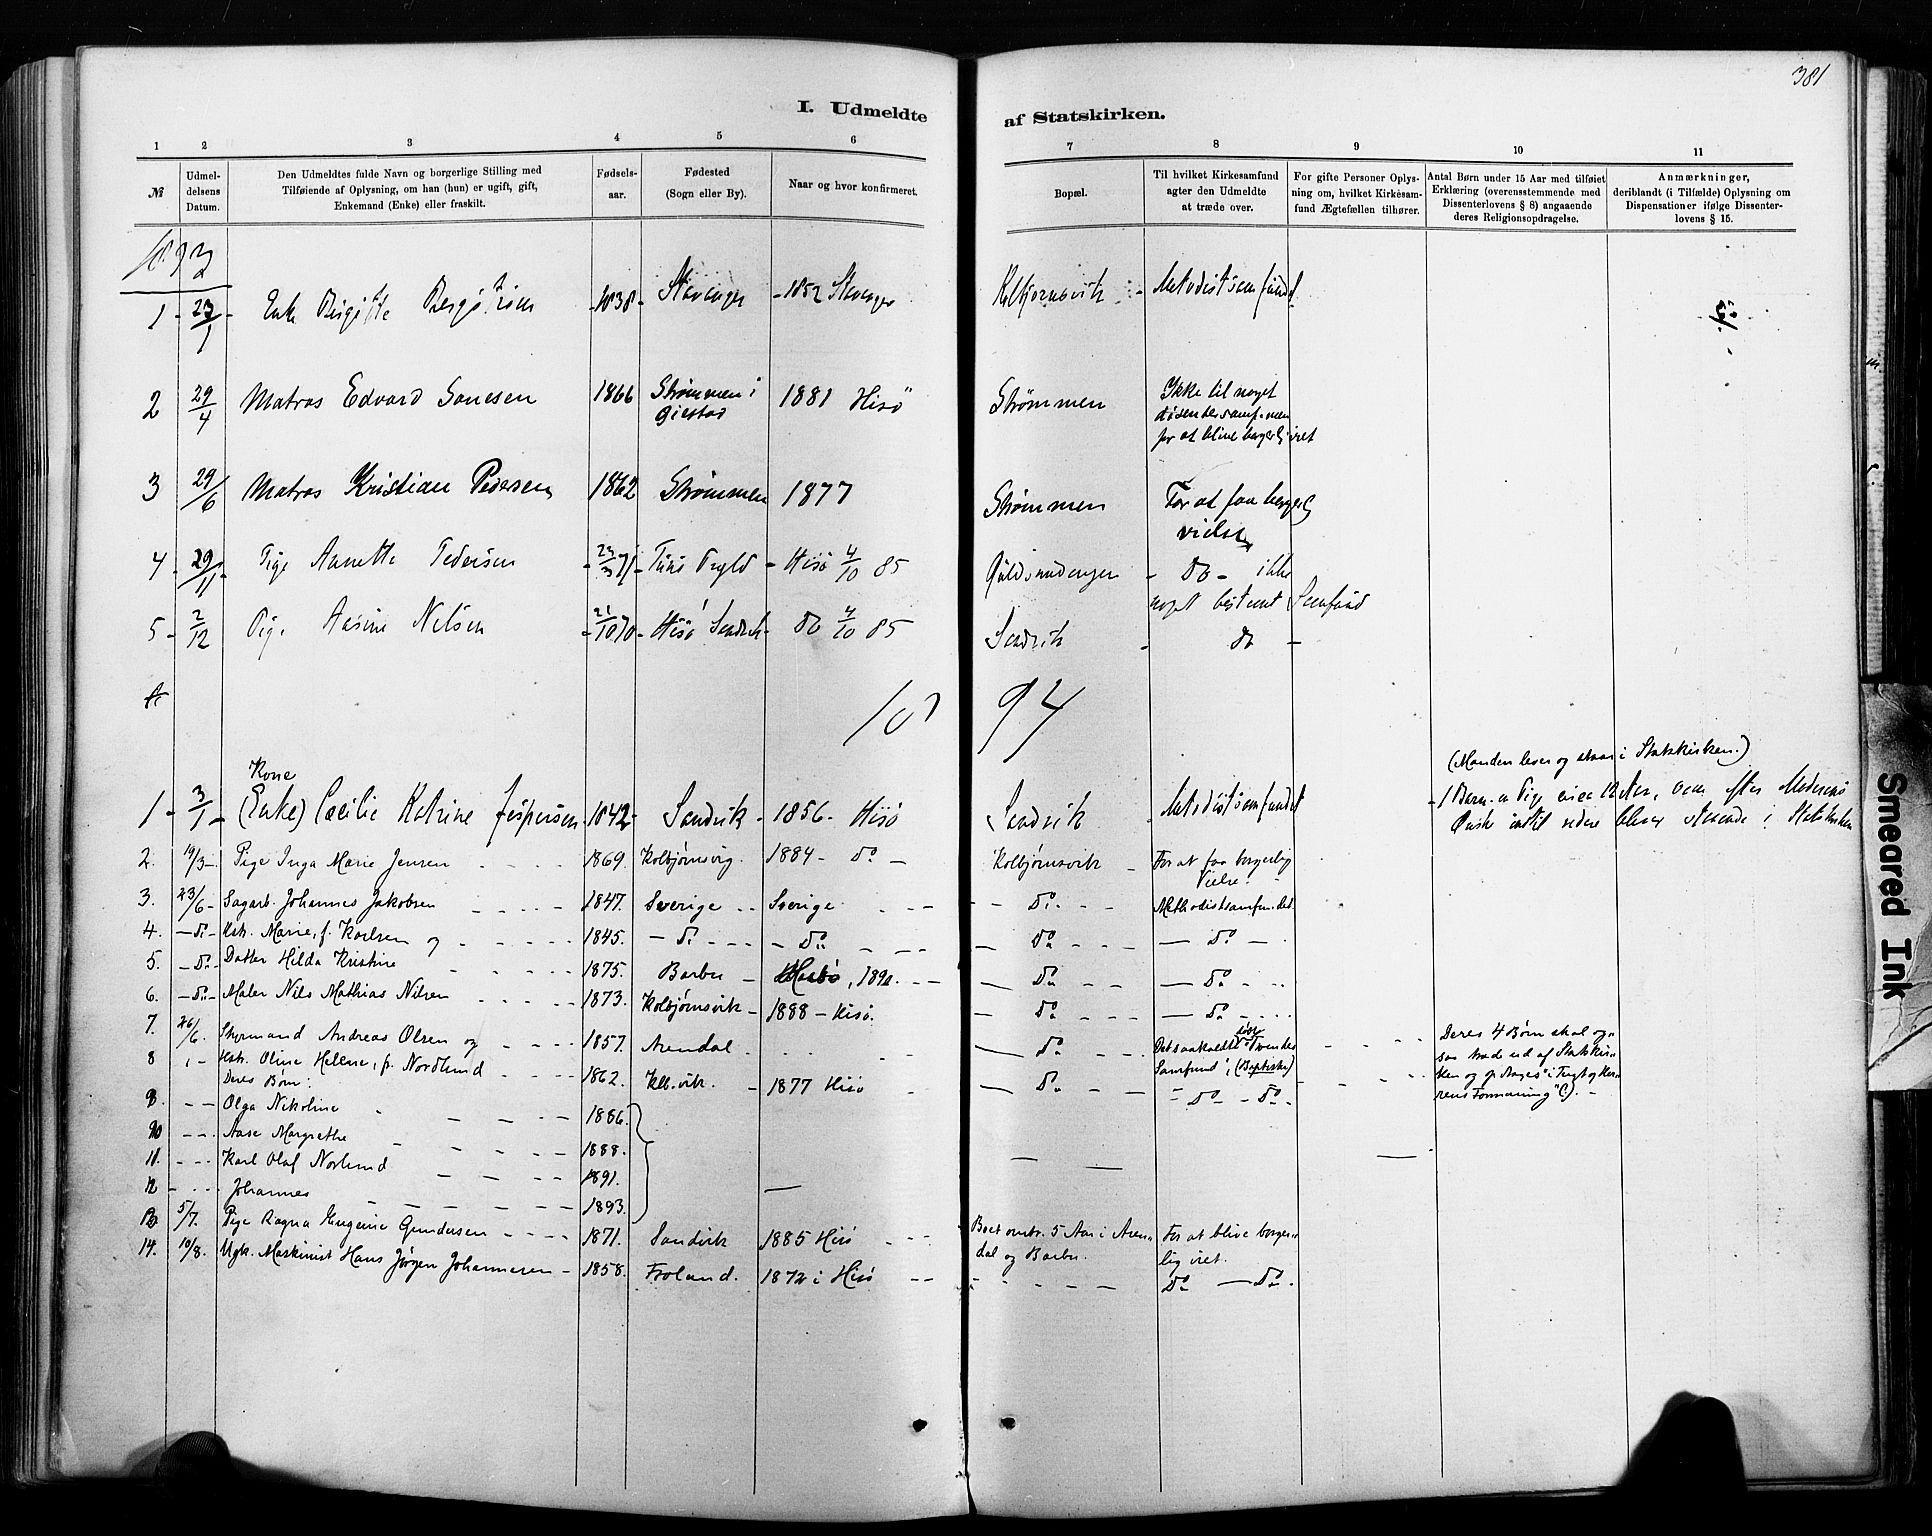 381
I. Udmeldte af Statskirken.
1 2 3 4 5 6 7 8 9 10 11
№
Udmel-
delsens
Datum.
Den Udmeldtes fulde Navn og borgerlige Stilling med
Tilføiende af Oplysning, om han (hun) er ugift, gift,
Enkemand (Enke) eller fraskilt.
Fødsels-
aar.
Fødested
(Sogn eller By).
Naar og hvor konfirmeret.
Bopæl.
Til hvilket Kirkesamfund
agter den Udmeldte
at træde over.
For gifte Personer Oplys-
ning om, hvilket Kirkesam-
fund Ægtefællen tilhører.
Antal Børn under 15 Aar med tilføiet
Erklæring (overensstemmende med
Dissenterlovens § 8) angaaende
deres Religionsopdragelse.
Anmærkninger,
deriblandt (i Tilfælde) Oplysning om
Dispensationer ifølge Dissenter-
lovens § 15.
1893
1 - 23/1 - Enke Birgitte Bergström - 1838 - Stavanger - 1852 Stavanger Kolbjørnsvik - Metodistsamfundet
2 29/4 Matros Edvard Sanesen 1866 Strømmen i Øiestad 1881 Hisö Strømmen Ikke til noget
dissentersamf. men
for at blive borgerlig viet
3 29/6 Matros Kristian Pedersen 1862 Strømmen 1877 Strømmen For at faa borgerlig
vielse
4 - 29/11 - Pige Anette Pedersen - 23/3 71 - - Hisö 4/10 85 - do - ikke
noget bestemt Samfund
5 - 2/12 Pige Aasine Nilsen - 21/10 70 - Hisö Sandvik - do 4/10 85 Sandvik - do -
18 94
Kone
1 - 3/1 - (Enke) Cæcilie Katrine Jespersen - 1842 - Sandvik - 1856 - Hisö Sandvik Metodistsamfundet
(Manden lever og staar i Statskirken.)
- 1 Barn en Pige circa 12 Aar, som efter Moderens
Ønske indtil videre bliver staaende i Statskirken
2. 19/3 - Pige Inga Marie Jensen - 1869. Kolbjørnsvig. 1884 - do - Kolbjørnsvik - For at faa borgerlig
Vielse.
3. 23/6 - Sagarb. Johannes Jakobsen - 1847. Sverige - Sverige. - do. - Methodistsamfundet.
4. - do - Hstr. Marie, f. Karlsen og - 1845. - do - - do - - do - - do -
5. - do - Datter Hilda Kristine - 1875. Barbu - 1890. - do - - do -
6. - do - Maler Nils Mathias Nilsen - 1873. Kolbjørnsvik - 1888 - Hisö. - do - - do -
7. 26/6. Styrmand Andreas Olsen og - 1857. Arendal - do - Det saakaldte "Troendes
8 " - Hstr. Oline Hellene, f. Nordlund - 1862. Kolb.vik. - 1877 Hisö - do - Samfund", (Baptister)
- do - do -
Deres 4 Børn skal og-
saa træde ud af Statskir-
ken og opdrages "i Tugt og Her-
rens Formaning" (!). -
Deres Børn:
9. - - Olga Nikoline - 1886.
10 - - Aase Margrethe - 1888.
11. - - Karl Olaf Norlund - 1891.
12 - - Johannes - 1893.
13 5/7. Pige Ragna Eugenie Gundersen - 1871. Sandvik 1885 Hisö - Boet omtr. 5 Aar i Aren-
dal og Barbu. For at blive borger-
lig viet.
14. 10/8. Ugk. Maskinist Hans Jörgen Johannesen - 1858. Froland. 1872 i Hisö - do - do -
Smeared Ink